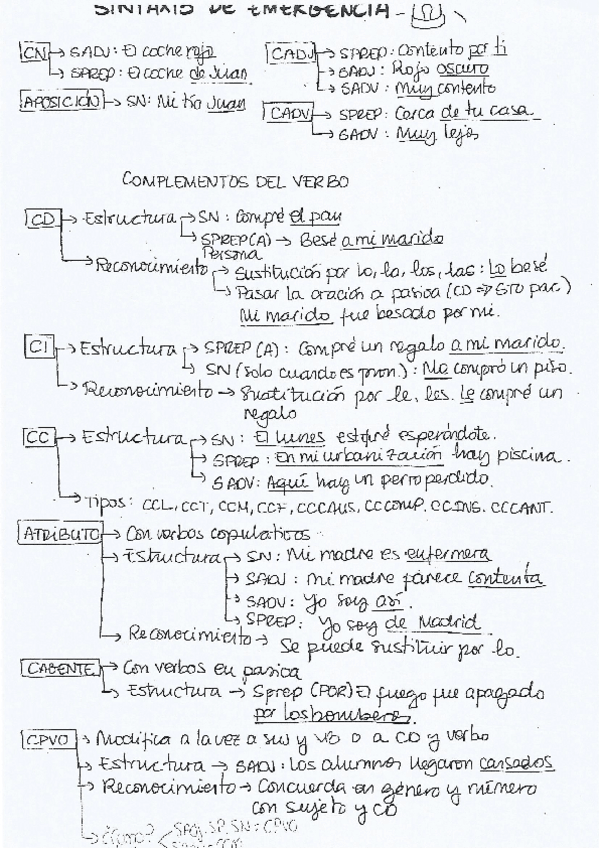 SINTAXIS DE EMERGENCIA -
CN → SADJ: El coche rojo
→ SPREP: El coche de Juan
APOSICIÓN → SN: Mi tío Juan
CADJ → SPREP: Contento por ti
→ SADJ: Rojo oscuro
→ SADV: Muy contento
CADV → SPREP: Cerca de tu casa
→ SADV: Muy lejos
COMPLEMENTOS DEL VERBO
CD → Estructura → SN: Compré el pan
→ SPREP (A) → Besé a mi marido
Persona
→ Reconocimiento → Sustitución por lo, la, los, las: Lo besé
→ Pasar la oración a pasiva (CD => STO pac.)
Mi marido fue besado por mí.
CI → Estructura → SPREP (A): Compré un regalo a mi marido.
→ SN (solo cuando es pron.): Me compró un piso.
→ Reconocimiento → Sustitución por le, les. Le compré un
regalo
CC → Estructura → SN: El lunes estaré esperándote.
→ SPREP: En mi urbanización hay piscina.
→ SADV: Aquí hay un perro perdido.
→ Tipos: CCL, CCT, CCM, CCF, CCCAUS, CCCOMP, CCINS. CCCANT.
ATRIBUTO → Con verbos copulativos
→ Estructura → SN: Mi madre es enfermera
→ SADJ: Mi madre parece contenta
→ SADV: Yo soy así.
→ SPREP: Yo soy de Madrid
→ Reconocimiento → Se puede sustituir por lo.
CAGENTE → Con verbos en pasiva
→ Estructura → Sprep (POR) El fuego fue apagado
por los bomberos.
CPVO → Modifica a la vez a suj y vb o a CD y verbo
→ Estructura → SADJ: Los alumnos llegaron cansados
→ Reconocimiento → Concuerda en género y número
con sujeto y CD
→ ¿Cómo? SAdj, SP, SN: CPVO